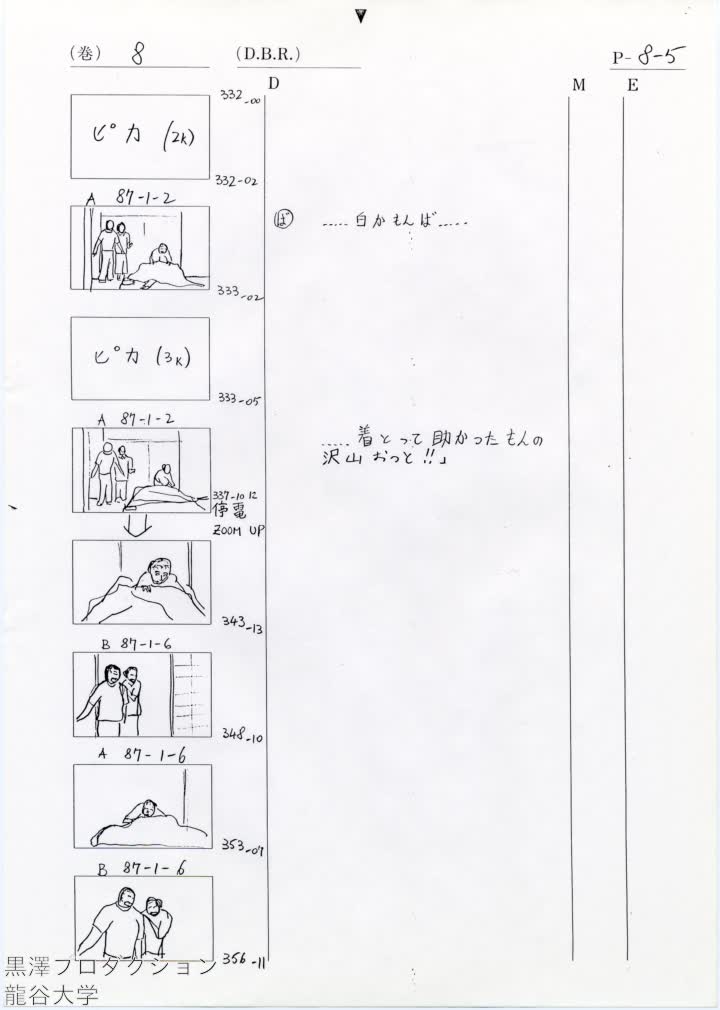 (巻) 8 (D.B.R.) P- 8-5
D M E
332-00
ピカ (2K)
332-02
A 87-1-2
ば ……白かもんば……
333-02
ピカ (3K)
333-05
A 87-1-2
……着とって助かったもんの
沢山おっと!!」
337-10 12
停電
ZOOM UP
343-13
B 87-1-6
348-10
A 87-1-6
353-07
B 87-1-6
356-11
黒澤プロダクション
龍谷大学